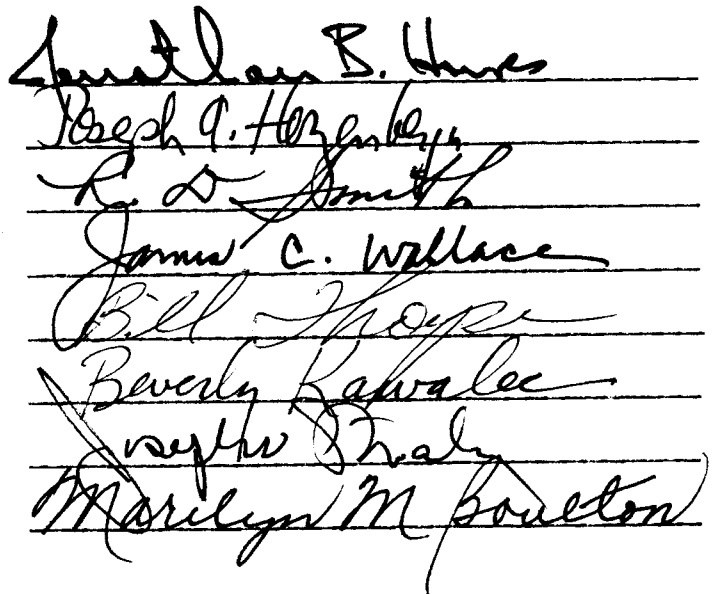 Jonathan B. Howes
Joseph A. Herzenberg
R. D. Smith
James C. Wallace
Bill Thorpe
Beverly Kawalec
Joseph
Marilyn M Boulton